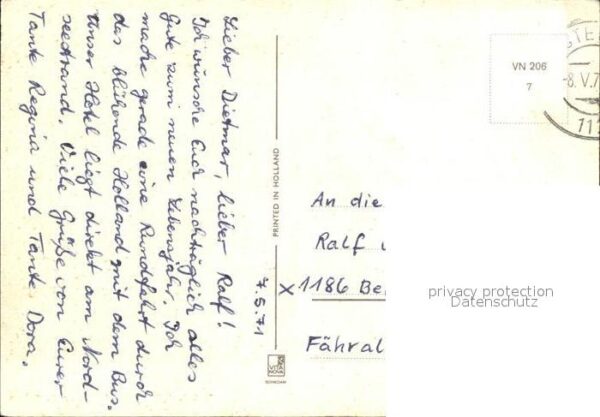 Lieber Dietmar, lieber Ralf!
Ich wünsche Euch nachträglich alles
Gute zum neuen Lebensjahr. Ich
mache gerade eine Rundfahrt durch
das blühende Holland mit dem Bus.
Unser Hotel liegt direkt am Nord-
seestrand. Viele Grüße von Eurer
Tante Regina und Tante Dora.
7.5.71
PRINTED IN HOLLAND
VITA NOVA
SCHIEDAM
VN 206
7
8.V.7
11
An die
Ralf
X 1186 Be
Fähral
privacy protection
Datenschutz